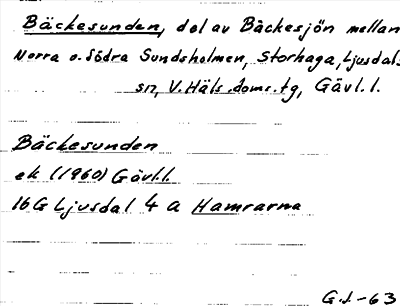 Bäckesunden, del av Bäckesjön mellan
Norra o. Södra Sundsholmen, Storhaga, Ljusdals
sn, V. Häls. doms. tg, Gävl. l.
Bäckesunden
ek (1960) Gävl. l.
16 G Ljusdal 4 a Hamrarna
G.J.-63